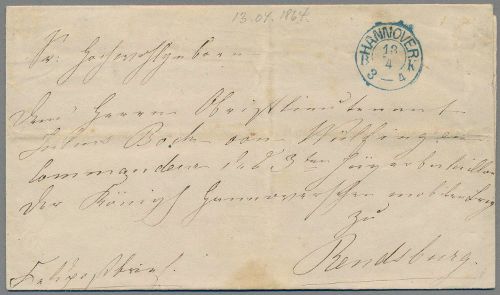 13.04.1864.
HANNOVER
13
4
3 — 4
K
Sr: Hochwohlgeboren
dem Herrn Obristlieutenant
Julius Bock von Wülfingen
Commandeur des 3ten Jägerbataillons
der Königl Hannoverschen mobilen Brig
zu
Rendsburg.
Feldpostbrief.